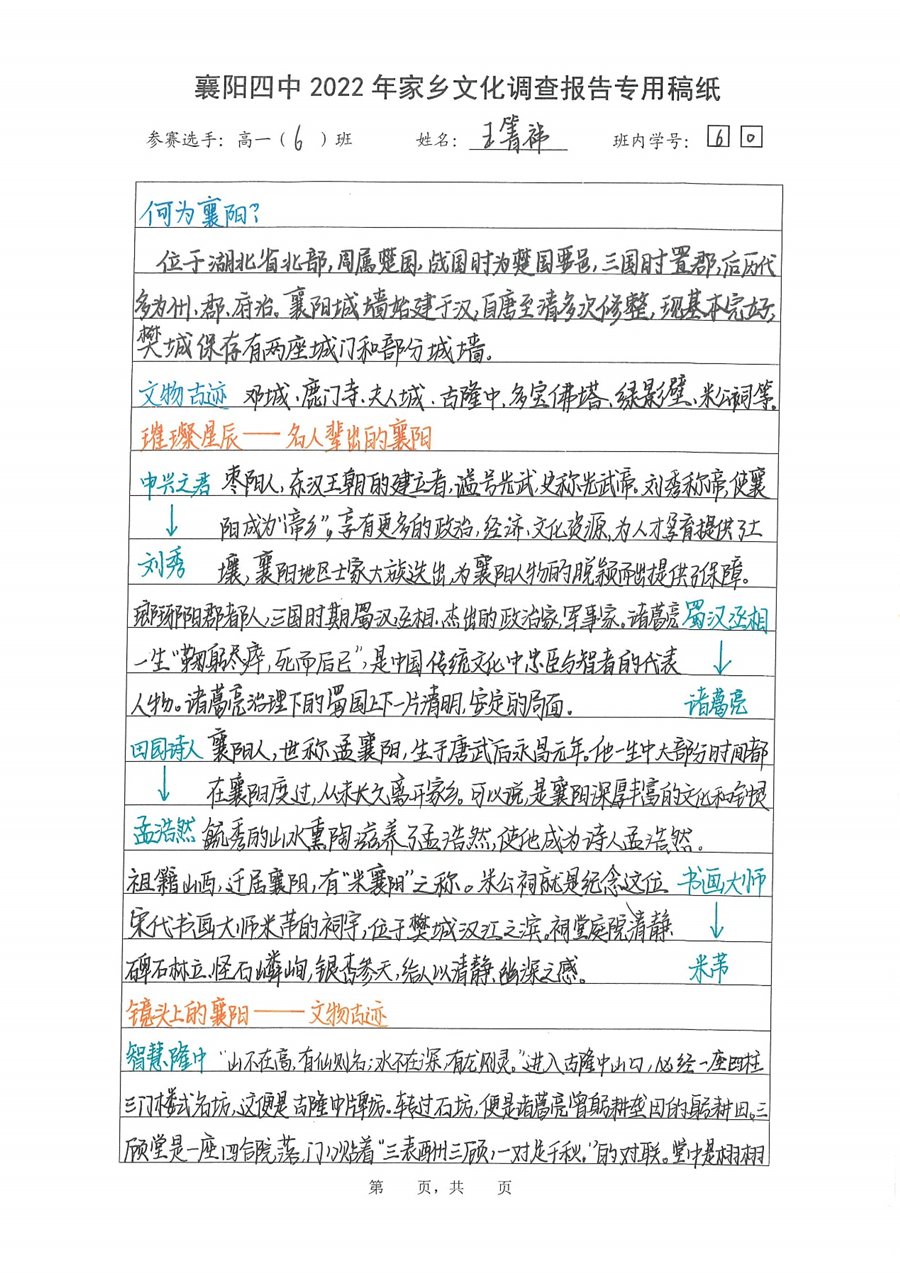 襄阳四中 2022 年家乡文化调查报告专用稿纸
参赛选手：高一（6）班 姓名：王箐祎 班内学号：6 0
何为襄阳？
位于湖北省北部，周属楚国，战国时为楚国要邑，三国时置郡，后历代
多为州、郡、府治。襄阳城墙始建于汉，自唐至清多次修整，现基本完好，
樊城保存有两座城门和部分城墙。
文物古迹 邓城、鹿门寺、夫人城、古隆中、多宝佛塔、绿影壁、米公祠等。
璀璨星辰——名人辈出的襄阳
中兴之君 枣阳人，东汉王朝的建立者，谥号光武，史称光武帝。刘秀称帝，使襄
阳成为“帝乡”，享有更多的政治，经济，文化资源，为人才孕育提供了土
刘秀 壤，襄阳地区士家大族迭出，为襄阳人物的脱颖而出提供了保障。
琅琊阳郡都人，三国时期蜀汉丞相，杰出的政治家，军事家。诸葛亮 蜀汉丞相
一生“鞠躬尽瘁，死而后已”，是中国传统文化中忠臣与智者的代表
人物。诸葛亮治理下的蜀国上下一片清明，安定的局面。 诸葛亮
田园诗人 襄阳人，世称孟襄阳，生于唐武后永昌元年。他一生中大部分时间都
在襄阳度过，从未长久离开家乡。可以说，是襄阳深厚丰富的文化和钟灵
孟浩然 毓秀的山水熏陶滋养了孟浩然，使他成为诗人孟浩然。
祖籍山西，迁居襄阳，有“米襄阳”之称。米公祠就是纪念这位 书画大师
宋代书画大师米芾的祠宇，位于樊城汉江之滨。祠堂庭院清静
碑石林立、怪石嶙峋，银杏参天，给人以清静、幽深之感。 米芾
镜头上的襄阳——文物古迹
智慧隆中 “山不在高，有仙则名；水不在深，有龙则灵。”进入古隆中山口，必经一座四柱
三门楼式石坊，这便是古隆中牌坊。转过石坊，便是诸葛亮曾躬耕垄亩的躬耕田。三
顾堂是一座四合院落，门以贴着“三表酬三顾，一对足千秋。”的对联。堂中是栩栩
第 页，共 页